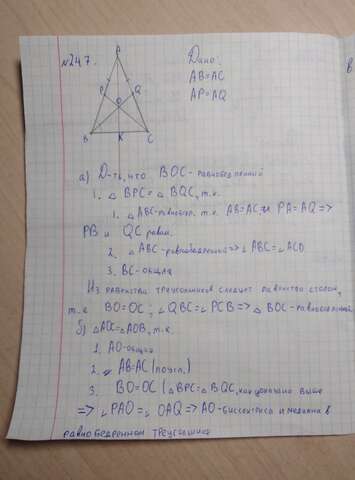 №247.
A
P
Q
O
B
K
C
Дано:
AB=AC
AP=AQ
а) Д-ть, что BOC - равнобедренный
1. △ BPC = △ BQC, т.к.
1. △ABC-равнобедр. т.к. AB=AC и PA=AQ =>
PB и QC равн.
2. △ABC-равнобедрен => ∠ABC=∠ACD
3. BC-общая
Из равенства треугольников следует равенство сторон,
т.е BO=OC; ∠QBC=∠PCB => △ BOC-равнобедренный
б) △AOC=△AOB, т.к.
1. AO-общая
2. AB=AC (по усл.)
3. BO=OC (△BPC=△BQC, как доказано выше
=> ∠PAO=∠OAQ => AO-биссектриса и медиана в
равнобедренном треугольнике